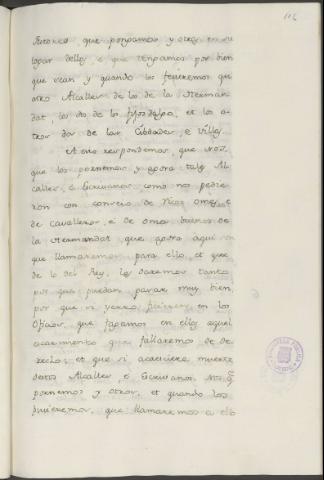 116
fueren, que pongamos y otros en su
logar dellos e que tengamos por bien
que sean y quando los fizieremos que
otro Alcalles de los de la Herman-
dat, los dos de los fijosdalgo, et los o-
tros dos de las Cibdades e villas.
A esto respondemos, que Nos,
que los pornemos, y agora tales Al-
calles, e Escrivanos, como nos pedie-
ron con consejo de Ricos omes, e
de cavalleros, e de omes buenos de
la Hermandat, que agora aqui son
que llamaremos para ello, et que
de lo del Rey, les daremos tanto
por que puedan pasar muy bien,
por que si yerro ficieren en los
Oficios, que fagamos en ellos aquel
escarmiento que fallaremos de de-
recho; et que si acaeciere muerte
destos Alcalles, e Escrivanos, Nos q
pornemos y otros, et quando los
pusieremos, que llamaremos a ello